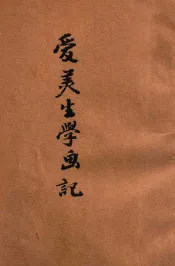 愛美生學画記